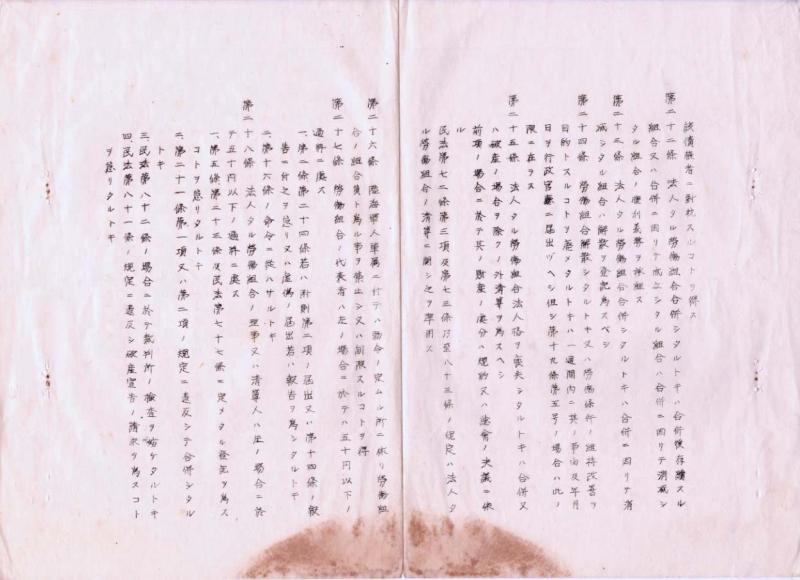 該債権者ニ対抗スルコトヲ得ス
第二十二条 法人タル労働組合合併シタルトキハ合併後存続スル
組合又ハ合併ニ因リテ成立シタル組合ハ合併ニ因リテ消滅シ
タル組合ノ権利義務ヲ承継ス
第二十三条 法人タル労働組合合併シタルトキハ合併ニ因リテ消
滅シタル組合ハ解散ノ登記ヲ為スベシ
第二十四条 労働組合解散シタルトキ又ハ労働条件ノ維持改善ヲ
目的トスルコトヲ廃メタルトキハ一週間内ニ其ノ事由及年月
日ヲ行政官廳ニ届出ヅベシ但シ第十九条第五号ノ場合ハ此ノ
限ニ在ラス
第二十五条 法人タル労働組合法人格ヲ喪失シタルトキハ合併又
ハ破産ノ場合ヲ除クノ外清算ヲ為スベシ
前項ノ場合ニ於テ其ノ財産ノ処分ハ規約又ハ総会ノ決議ニ依
ル
民法第七二条第三項及第七三条乃至八十三条ノ規定ハ法人タ
ル労働組合ノ清算ニ関シ之ヲ準用ス
第二十六条 陸海軍人軍属ニ付テハ勅令ノ定ムル所ニ依リ労働組
合ノ組合員ト為ル事ヲ禁止シ又ハ制限スルコトヲ得
第二十七条 労働組合ノ代表者ハ左ノ場合ニ於テハ五十円以下ノ
過料ニ処ス
一、第二条第二十四条若ハ附則第二項ノ届出又ハ第十四条ノ報
告ニ付之ヲ怠リ又ハ虚偽ノ届出若ハ報告ヲ為シタルトキ
二、第十六条ノ命令ニ従ハサルトキ
第二十八条 法人タル労働組合ノ理事又ハ清算人ハ左ノ場合ニ於
テ五十円以下ノ過料ニ処ス
一、第五条第二十三条及民法第七十七条ニ定メタル登記ヲ為ス
コトヲ怠リタルトキ
二、第二十一条第一項又ハ第二項ノ規定ニ違反シテ合併シタル
トキ
三、民法第八十二条ノ場合ニ於テ裁判所ノ検査ヲ妨ケタルトキ
四、民法第八十一条ノ規定ニ違反シ破産宣告ノ請求ヲ為スコト
ヲ怠リタルトキ